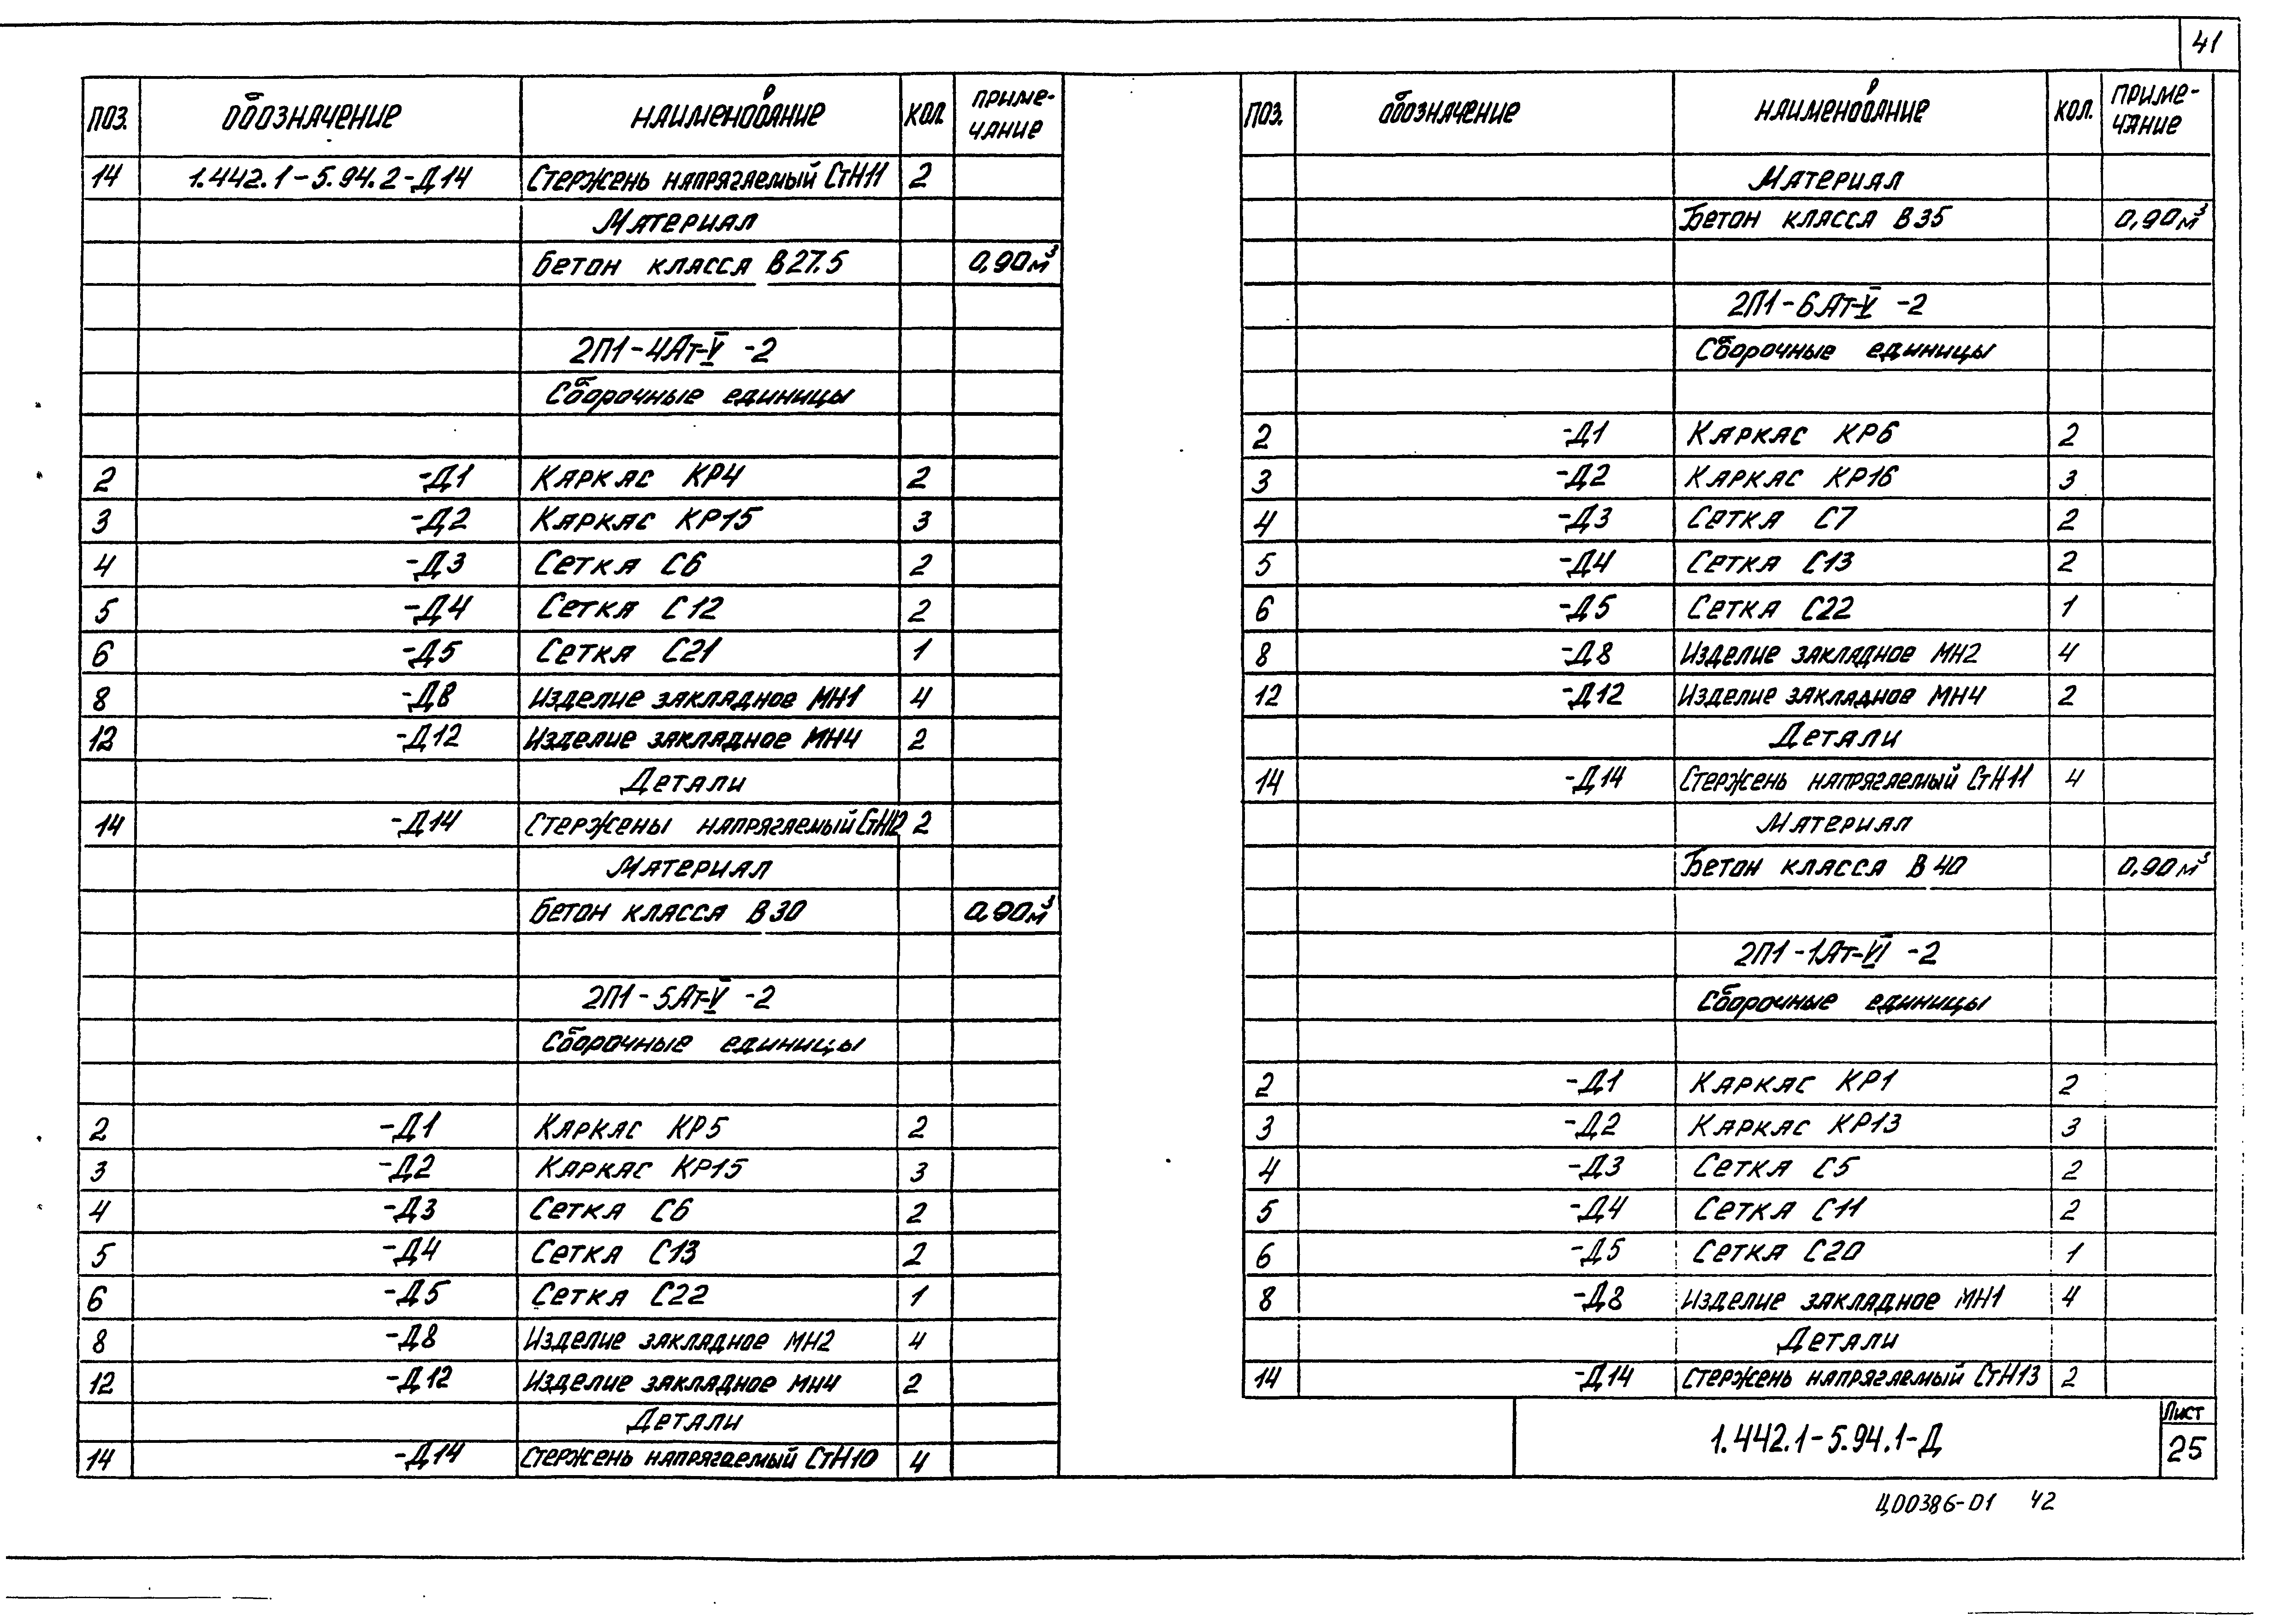 41
ПОЗ. ОБОЗНАЧЕНИЕ НАИМЕНОВАНИЕ КОЛ. ПРИМЕ-
ЧАНИЕ
14 1.442.1-5.94.2-Д14 Стержень напрягаемый СтН11 2
Материал
Бетон класса В27.5 0,90м³
2П1-4Ат-V -2
Сборочные единицы
2 -Д1 Каркас КР4 2
3 -Д2 Каркас КР15 3
4 -Д3 Сетка С6 2
5 -Д4 Сетка С12 2
6 -Д5 Сетка С21 1
8 -Д8 Изделие закладное МН1 4
12 -Д12 Изделие закладное МН4 2
Детали
14 -Д14 Стержены напрягаемый СтН12 2
Материал
Бетон класса В30 0,90м³
2П1-5Ат-V -2
Сборочные единицы
2 -Д1 Каркас КР5 2
3 -Д2 Каркас КР15 3
4 -Д3 Сетка С6 2
5 -Д4 Сетка С13 2
6 -Д5 Сетка С22 1
8 -Д8 Изделие закладное МН2 4
12 -Д12 Изделие закладное МН4 2
Детали
14 -Д14 Стержень напрягаемый СтН10 4
ПОЗ. ОБОЗНАЧЕНИЕ НАИМЕНОВАНИЕ КОЛ. ПРИМЕ-
ЧАНИЕ
Материал
Бетон класса В35 0,90м³
2П1-6Ат-V -2
Сборочные единицы
2 -Д1 Каркас КР6 2
3 -Д2 Каркас КР16 3
4 -Д3 Сетка С7 2
5 -Д4 Сетка С13 2
6 -Д5 Сетка С22 1
8 -Д8 Изделие закладное МН2 4
12 -Д12 Изделие закладное МН4 2
Детали
14 -Д14 Стержень напрягаемый СтН11 4
Материал
Бетон класса В40 0,90м³
2П1-1Ат-VI -2
Сборочные единицы
2 -Д1 Каркас КР1 2
3 -Д2 Каркас КР13 3
4 -Д3 Сетка С5 2
5 -Д4 Сетка С11 2
6 -Д5 Сетка С20 1
8 -Д8 Изделие закладное МН1 4
Детали
14 -Д14 Стержень напрягаемый СтН13 2
1.442.1-5.94.1-Д
Лист
25
Ц00386-01 42